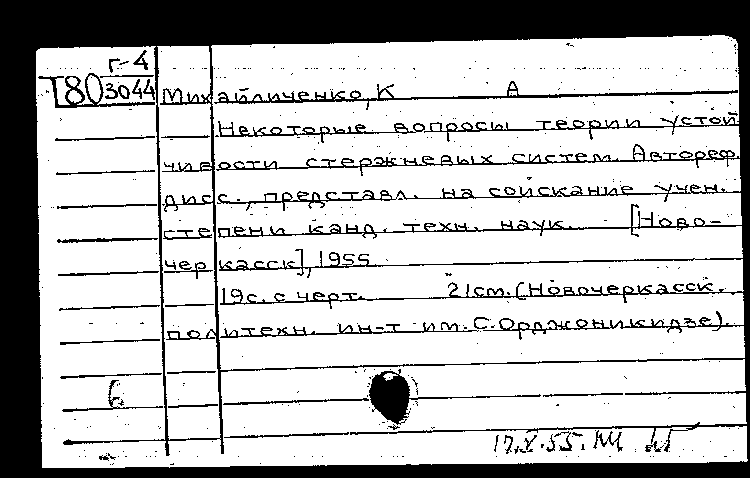 Г-4
Т80 3044 Михайличенко, К А
Некоторые вопросы теории устой
чивости стержневых систем. Автореф.
дисс., представл. на соискание учен.
степени канд. техн. наук. [Ново-
черкасск], 1955
19с. с черт. 21см. (Новочеркасск.
политехн. ин-т им. С. Орджоникидзе).
6
17.X.55.